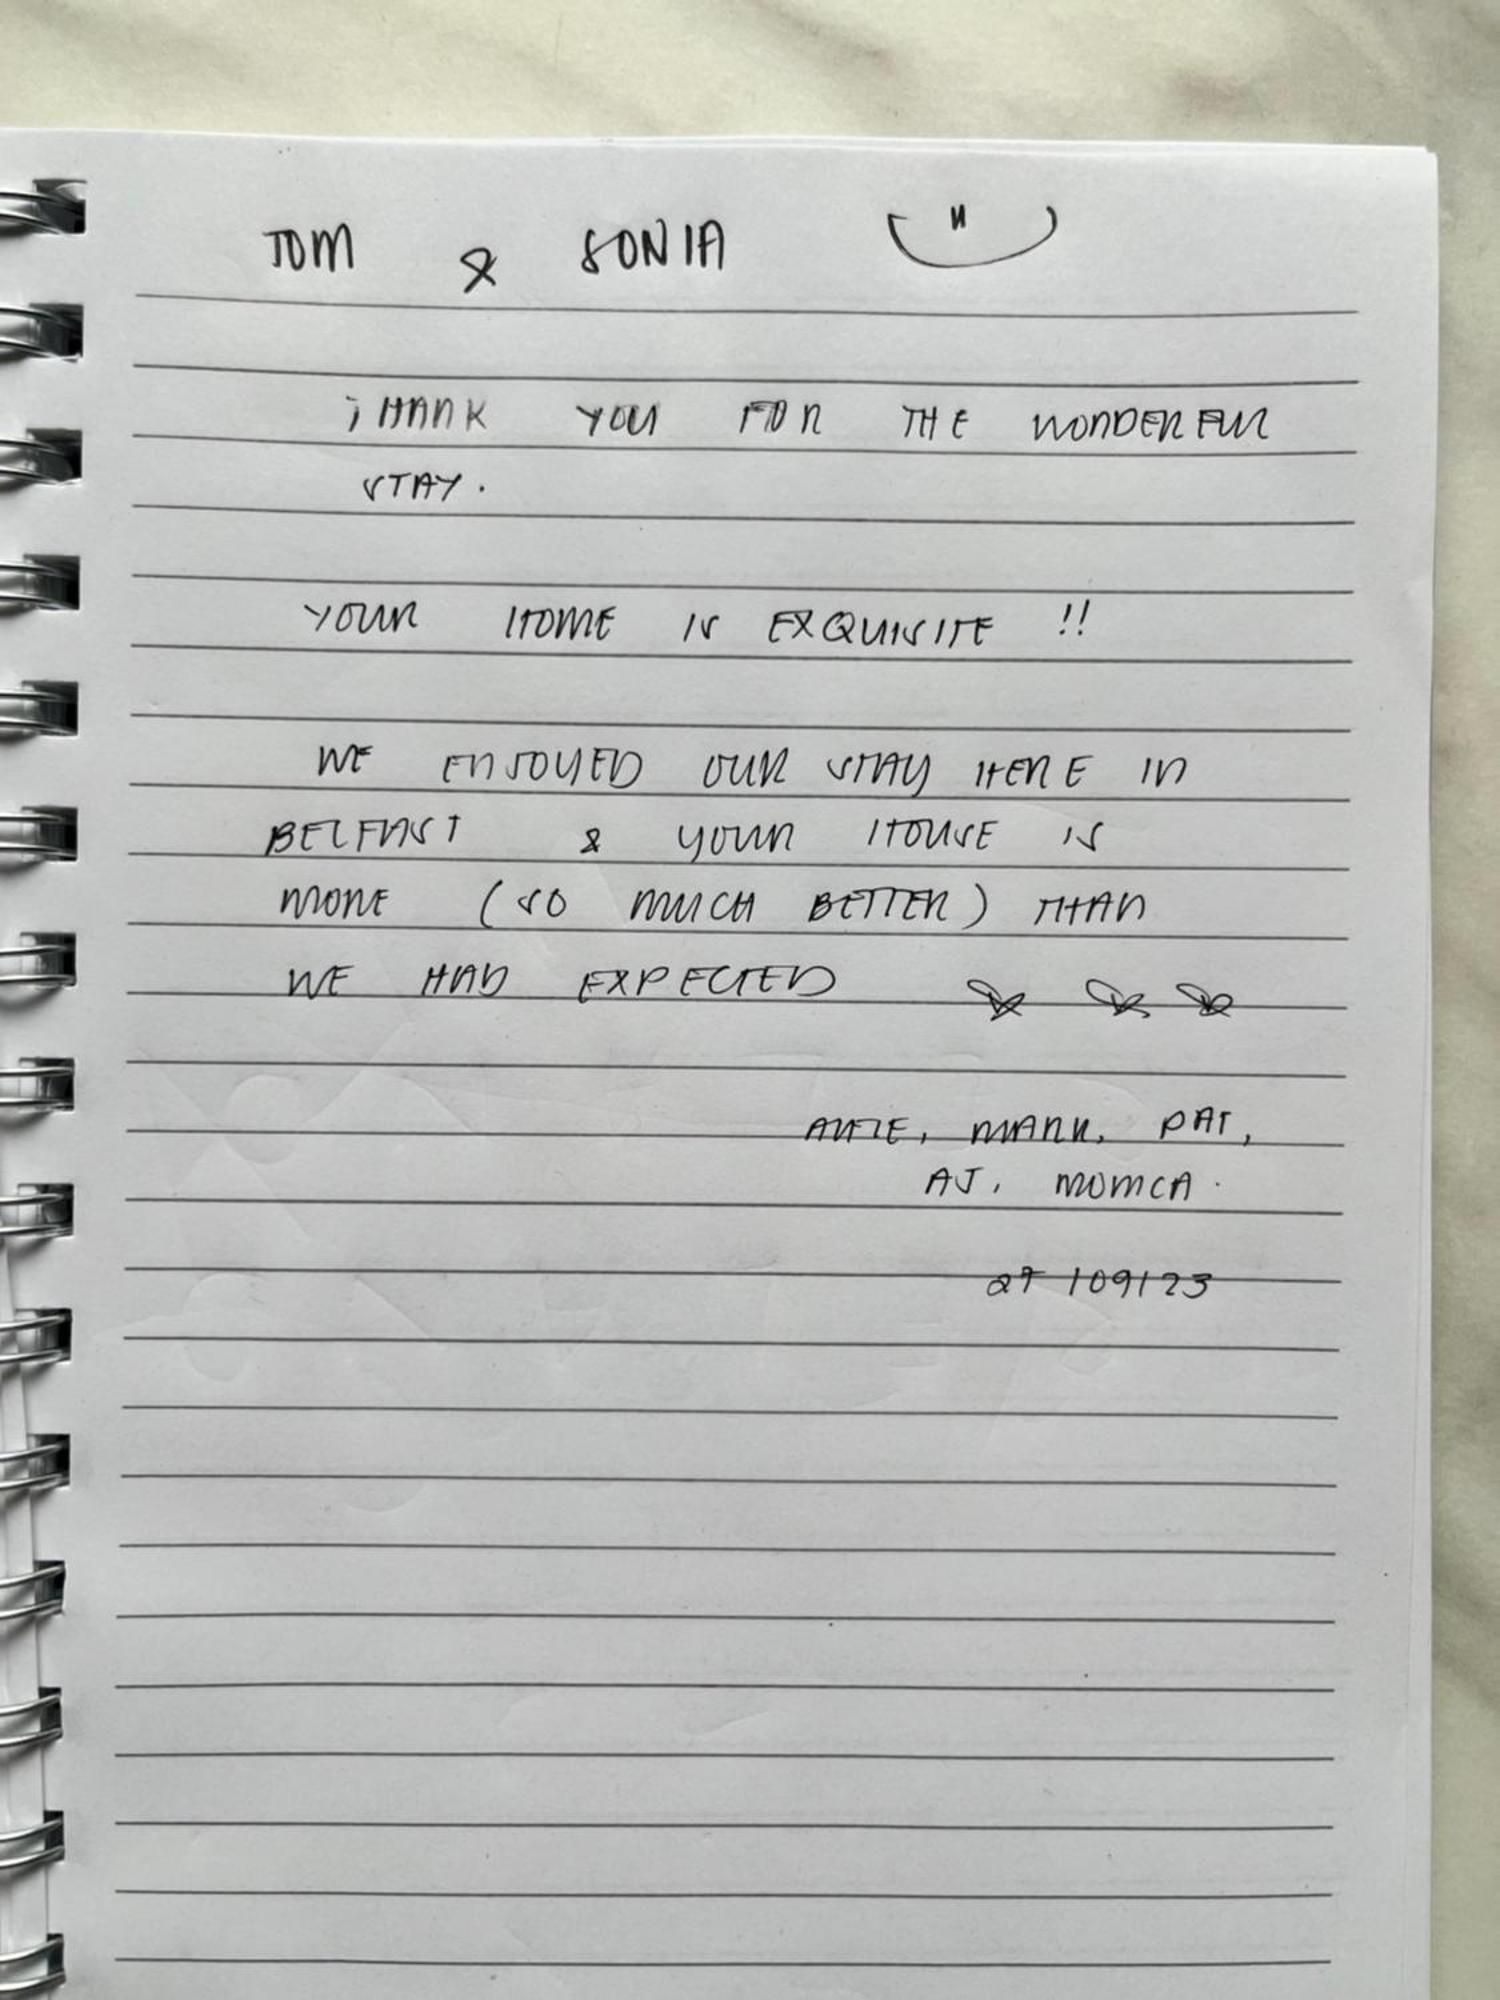 TOM & SONIA
THANK YOU FOR THE WONDERFUL
STAY.
YOUR HOME IS EXQUISITE !!
WE ENJOYED OUR STAY HERE IN
BELFAST & YOUR HOUSE IS
MORE (SO MUCH BETTER) THAN
WE HAD EXPECTED
MARK, PAT,
AJ,
27/09/23